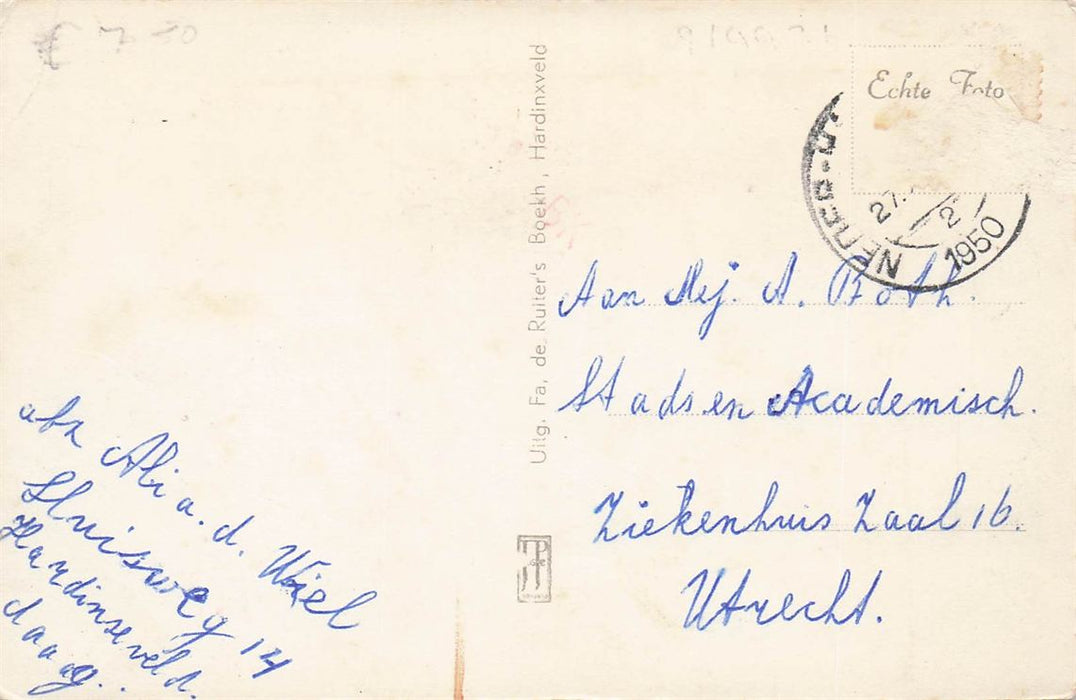 € 7.50
Echte Foto
27.
2
1950
Uitg. Fa, de Ruiter's Boekh, Hardinxveld
Aan Mej. A. Both.
Stads en Academisch.
Ziekenhuis Zaal 16.
Utrecht.
afz Ali a. d. Wiel
Sluisweg 14
Hardinseveld.
daaag..